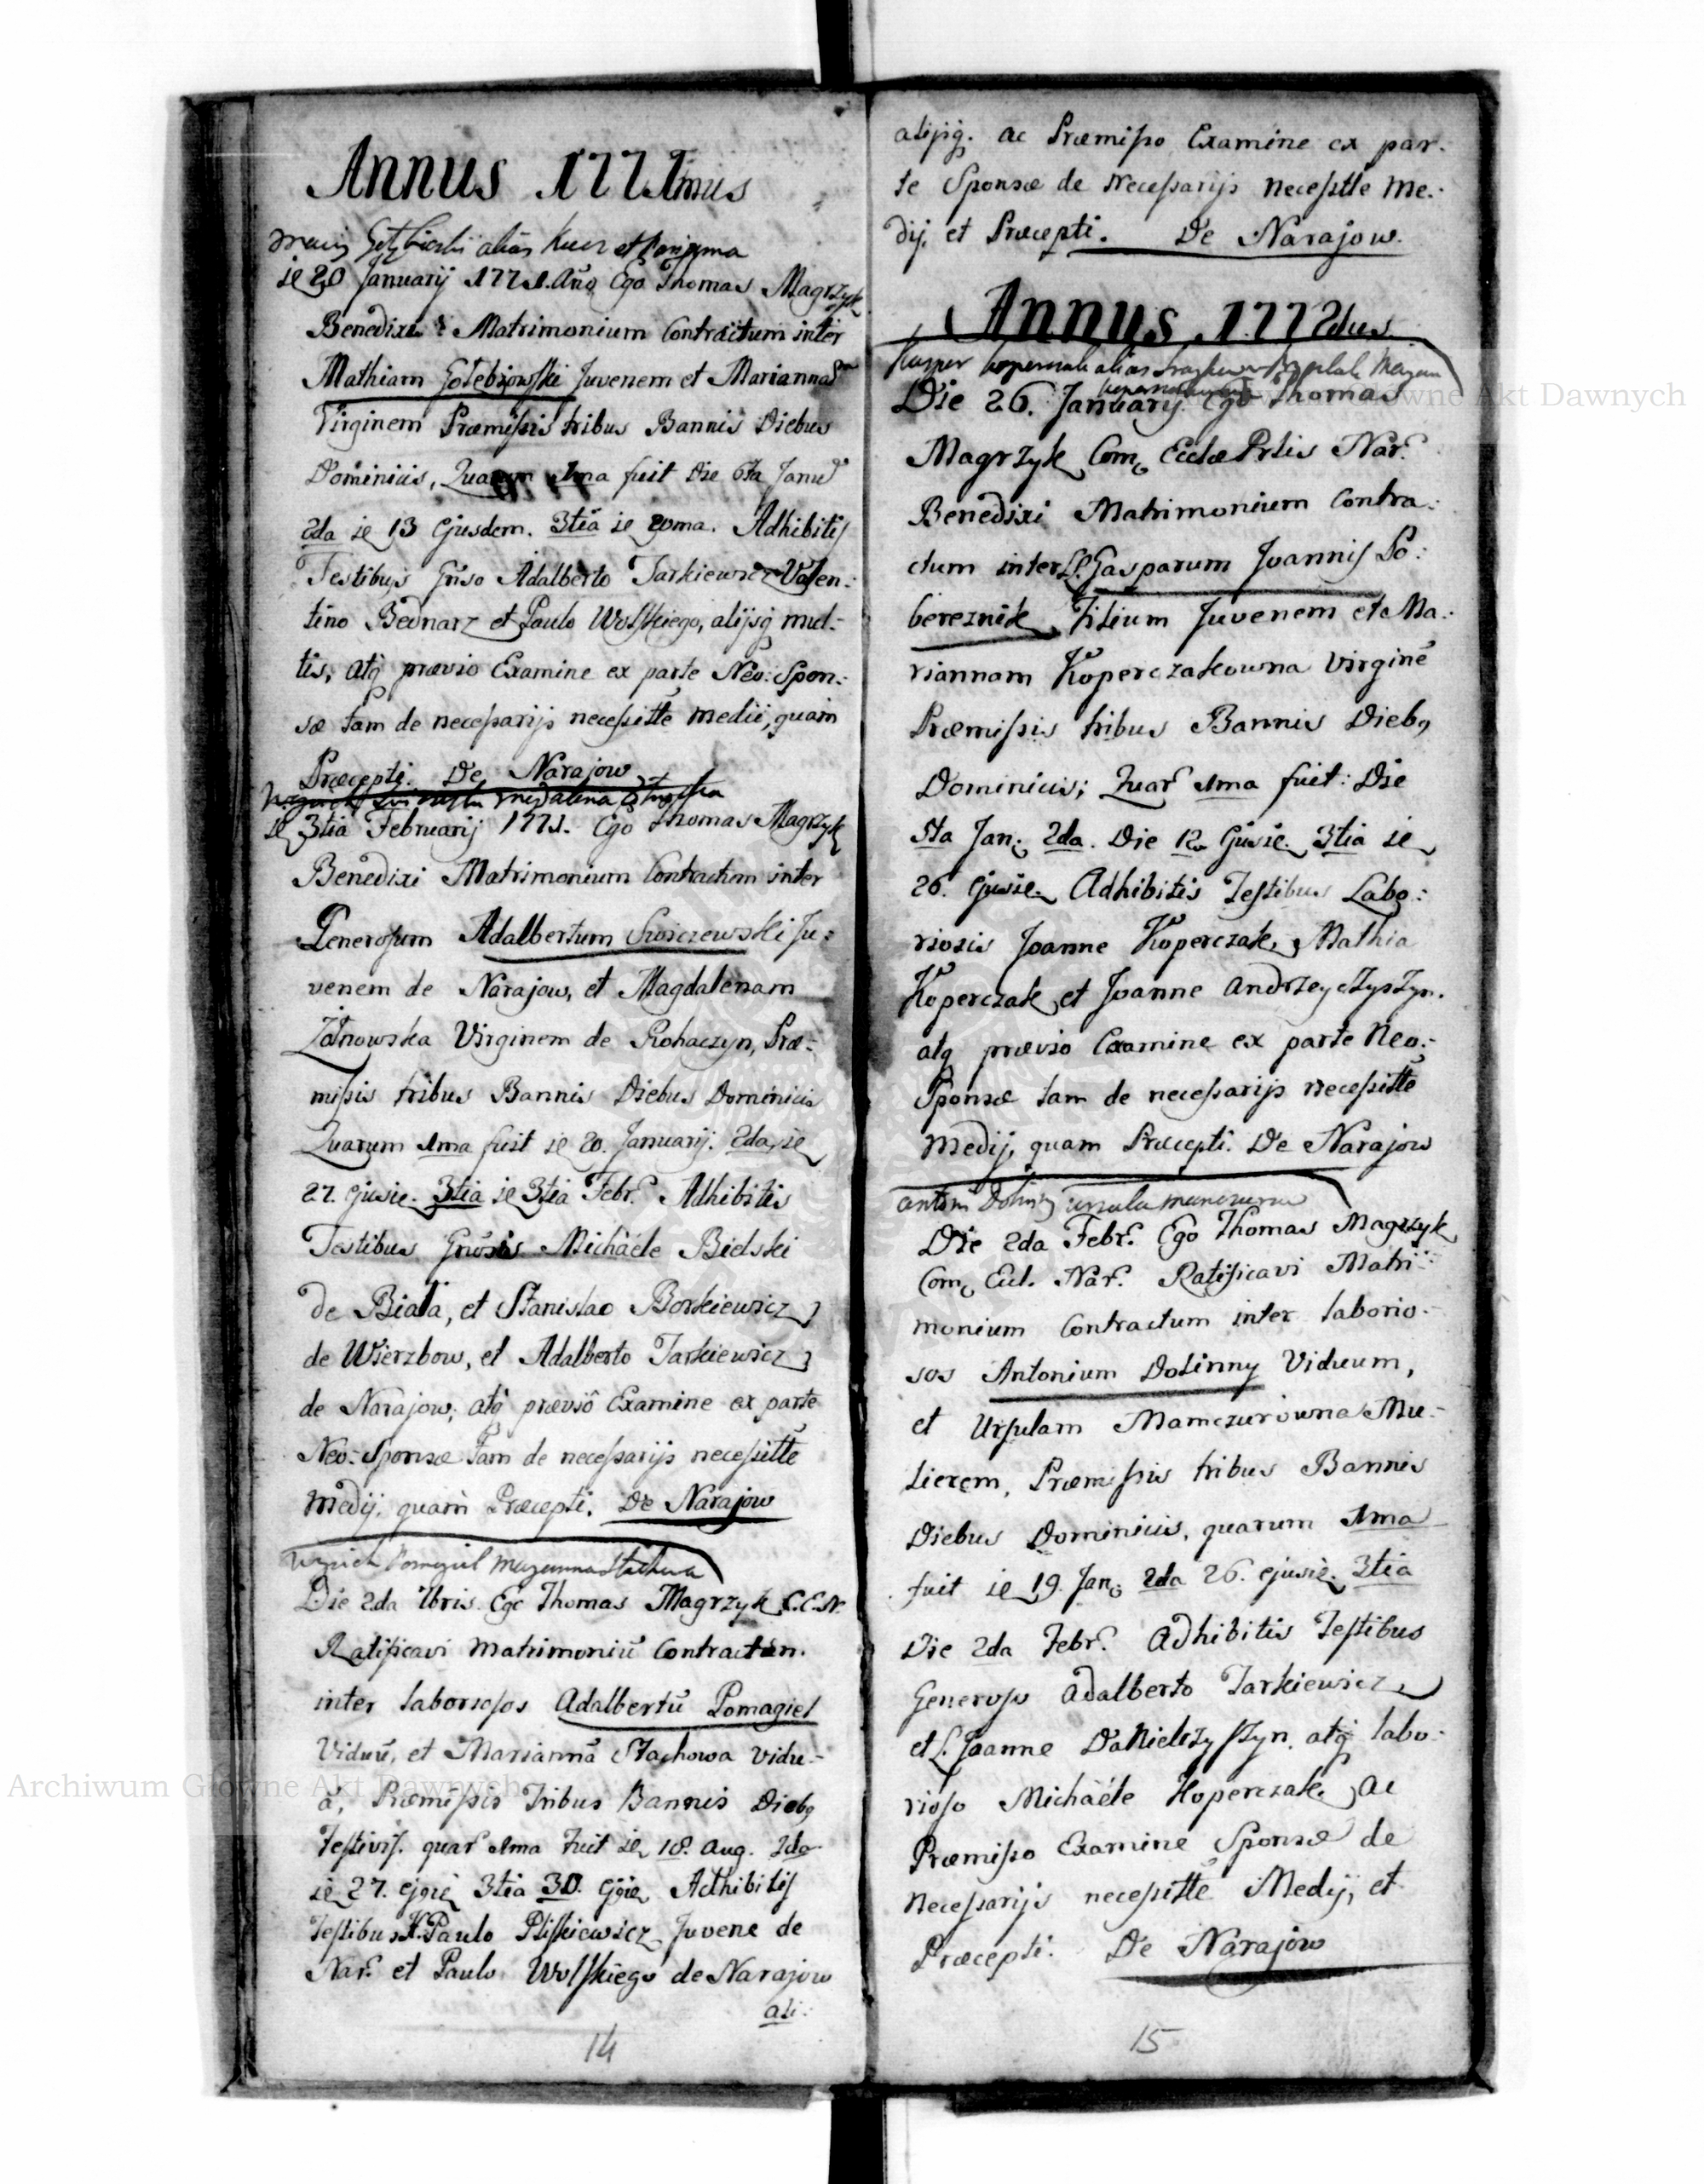 Annus 1771mus
alias Kucz et
ie 20 Januarij 1771. Año Ego Thomas Magrzyk
Benedixi Matrimonium Contractum inter
Mathiam Gołębiowski Juvenem et Mariannam
Virginem Præmissis tribus Bannis Diebus
Dominicis, Quarum 1ma fuit Die 6ta Janu
2da ie 13 Ejusdem. 3tia ie 20ma. Adhibitis
Testibus Gñso Adalberto Tarkiewicz Valen:
tino Bednarz et Paulo Wolskiego, alijsq mul:
tis, atq prævio Examine ex parte Neo: Spon:
sæ tam de necessarijs necessitte medii, quam
Præcepti. De Narajow
Magdalena
ie 3tia Februarij 1771. Ego Thomas Magrzyk
Benedixi Matrimonium Contractum inter
Generosum Adalbertum Swiczewski Ju:
venem de Narajow, et Magdalenam
Virginem de Rohaczyn, Præ:
missis tribus Bannis Diebus Dominicis
Quarum 1ma fuit ie 20. Januarij. 2da ie
27. ejusie. 3tia ie 3tia Febr. Adhibitis
Testibus Gñosis Michaele Bielski
de Biała, et Stanislao Borkiewicz
de Wierzbow, et Adalberto Tarkiewicz
de Narajow; atq prævio Examine ex parte
Neo: Sponsæ tam de necessarijs necessitte
Medij, quam Præcepti. De Narajow
Pomagiel Maryanna Stachowa
Die 2da 7bris. Ego Thomas Magrzyk C.E.N.
Ratificavi Matrimoniū Contractum.
inter laboriosos Adalbertū Pomagiel
Viduū, et Mariannā Stachowa vidu:
ā, Præmissis Tribus Bannis Dieb9
Festivis. quar 1ma Fuit ie 18. Aug. 2da
ie 27. ejgie 3tia 30. Ejgie Adhibitis
Testibus H. Paulo Pliskiewicz Juvene de
Nar. et Paulo Wolskiego de Narajow
ali:
14
alijsq. ac Præmisso Examine ex par:
te Sponsæ de Necessarijs necessitte Me:
dij, et Præcepti. De Narajow.
Annus 1772dus
Kasper alias
Die 26. January Ego Thomas
Magrzyk Com. Ecclæ Prlis Nar.
Benedixi Matrimonium Contra:
ctum inter L. Gasparum Joannis Po:
bereznik Filium Juvenem et Ma:
riannam Koperczakowna Virginē
Præmissis tribus Bannis Dieb9
Dominicis; Quar 1ma fuit: Die
5ta Jan. 2da. Die 12 Ejusie. 3tia ie
26. Ejusie. Adhibitis Testibus Labo:
riosis Joanne Koperczak, Mathia
Koperczak et Joanne Andrzeyczyszyn.
atq prævio Examine ex parte Neo:
Sponsæ tam de necessarijs necessitte
Medij, quam Præcepti. De Narajow
Antoni Dolinny Ursula
Die 2da Febr. Ego Thomas Magrzyk
Com. Ecl. Nar. Ratificavi Matri:
monium Contractum inter laborio:
sos Antonium Dolinny Viduum,
et Ursulam Mamczurowna Mu:
lierem, Præmissis tribus Bannis
Diebus Dominicis, quarum 1ma
fuit ie 19. Jan. 2da 26. ejusie. 3tia
Die 2da Febr. Adhibitis Testibus
Generoso Adalberto Tarkiewicz
et L. Joanne Danielczyszyn, atq labo:
rioso Michaele Koperczak, ac
Præmisso Examine Sponsæ de
Necessarijs necessitte Medij, et
Præcepti. De Narajow
15
Archiwum Główne Akt Dawnych
Archiwum Główne Akt Dawnych